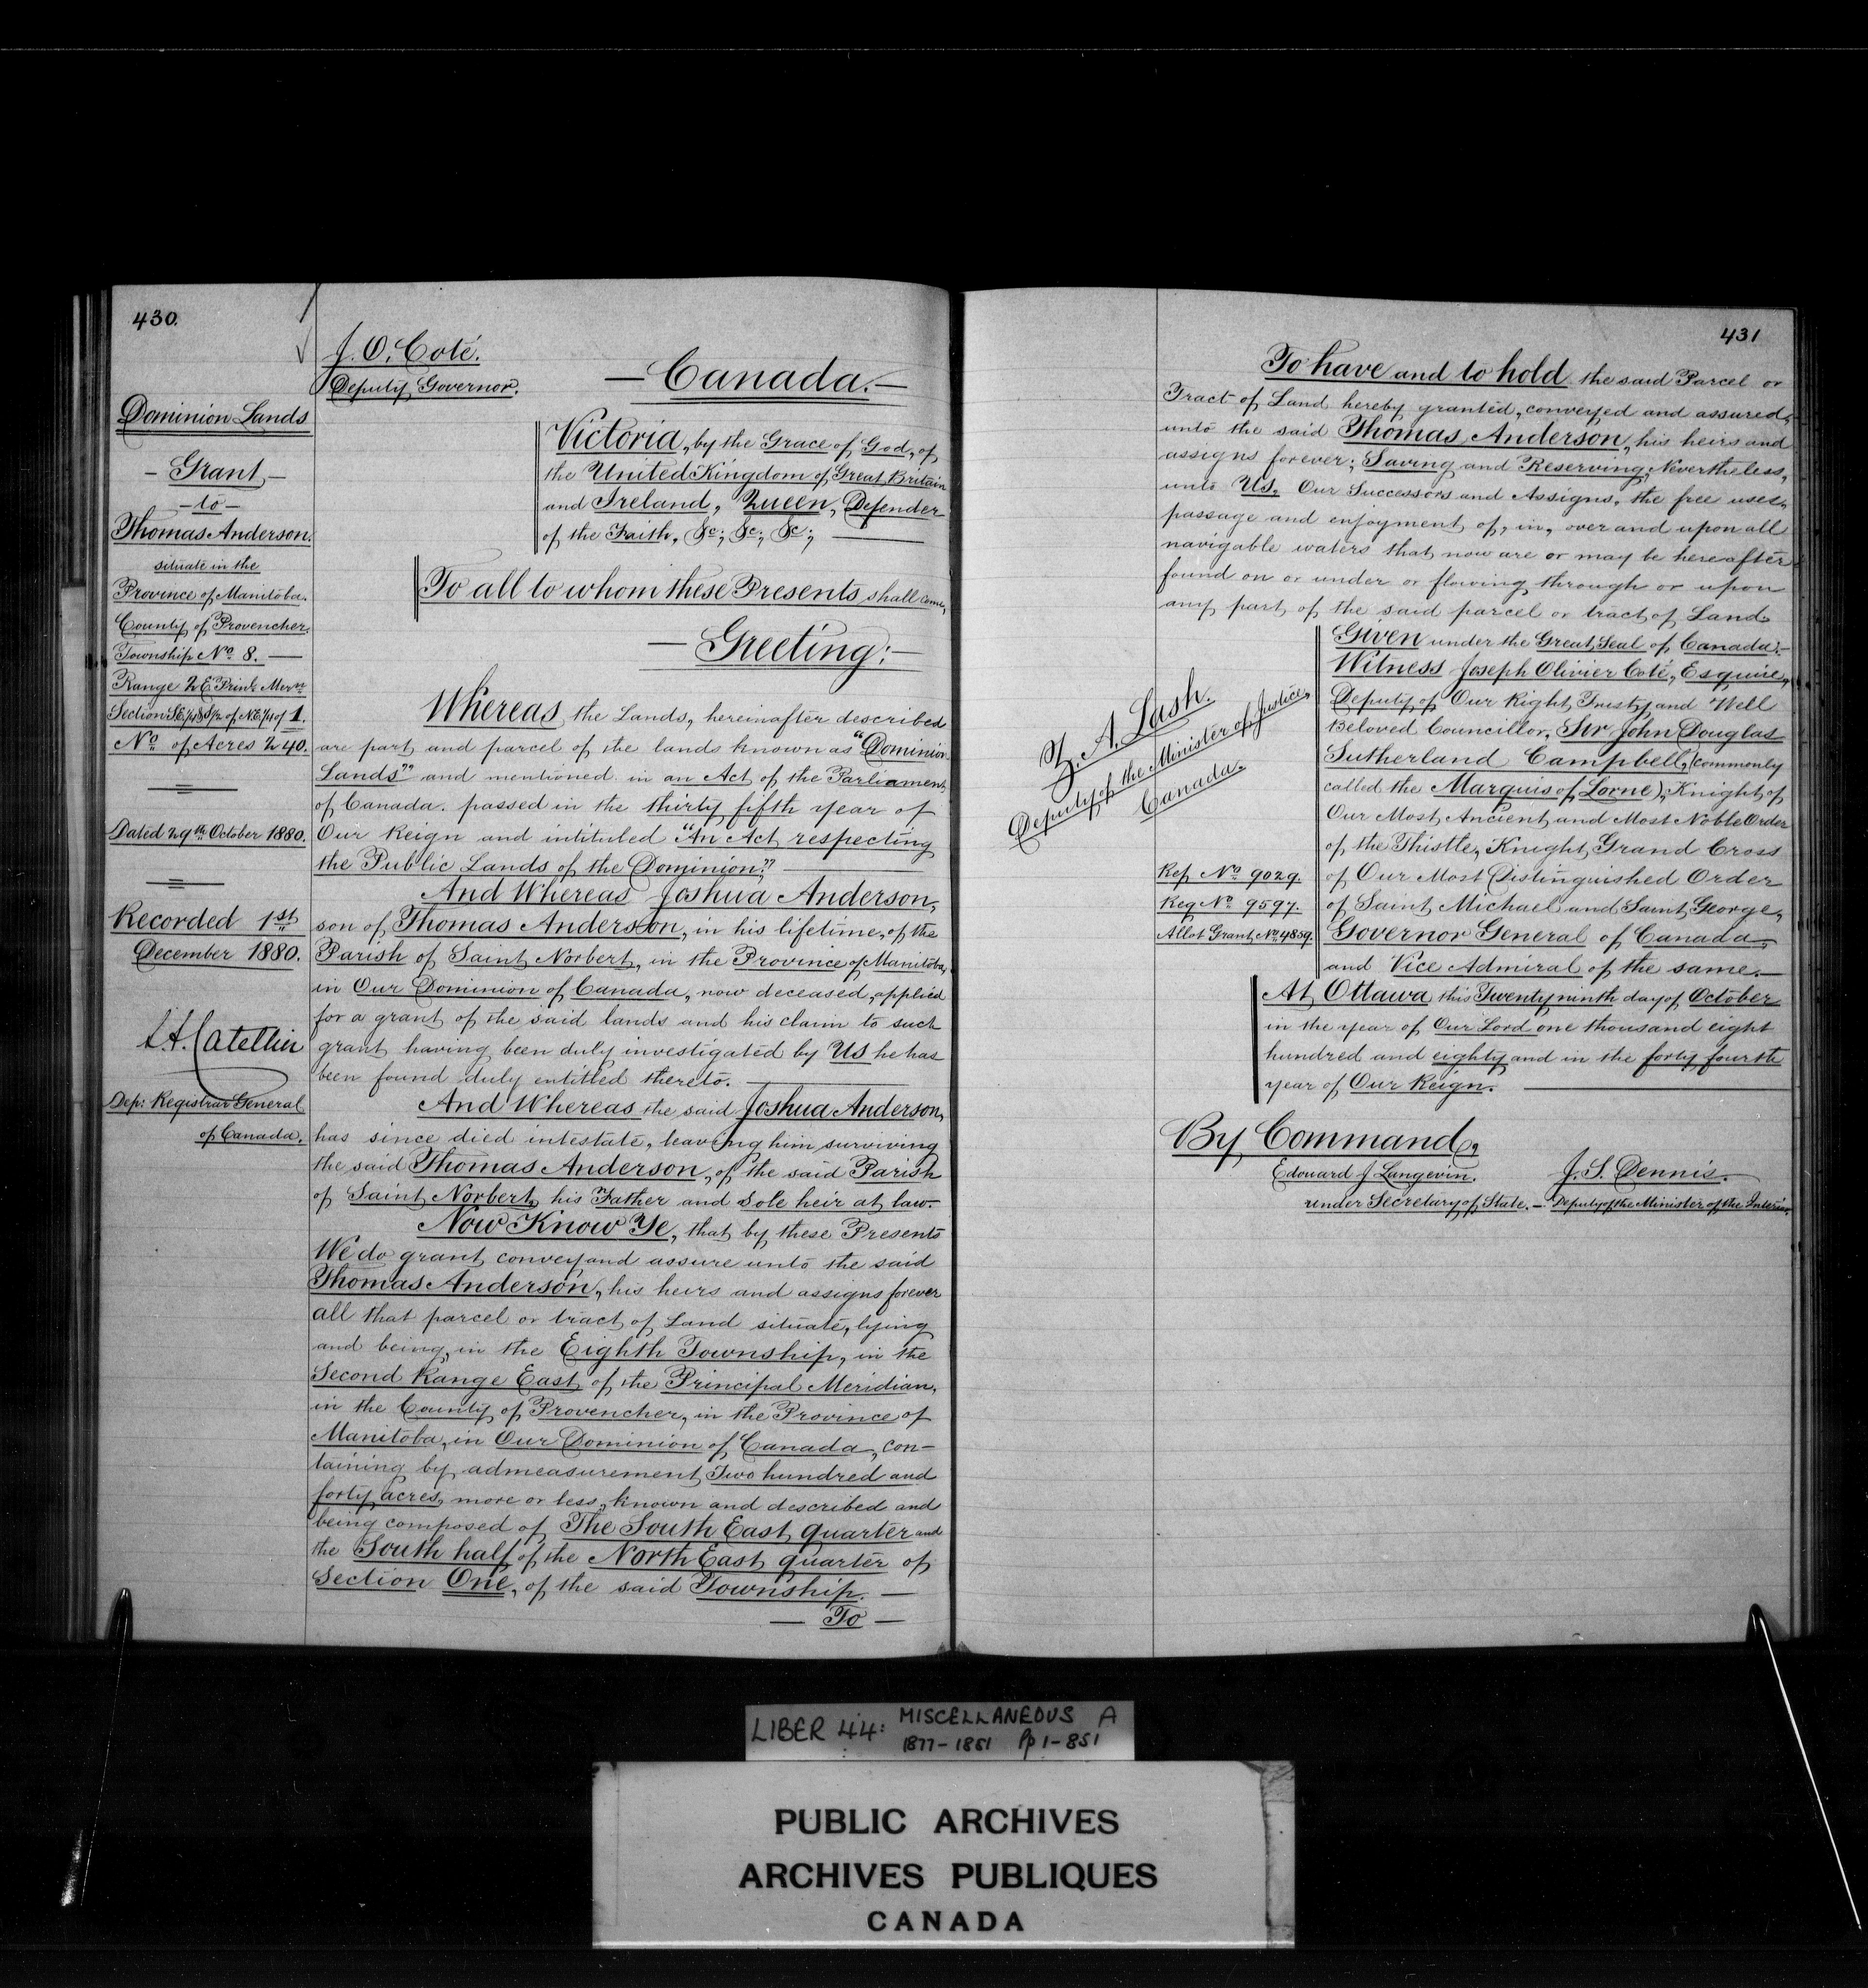 430.
J. O. Coté.
Deputy Governor.
Dominion Lands
- Grant -
- to -
Thomas Anderson.
situate in the
Province of Manitoba.
County of Provencher.
Township No. 8. —
Range 2 E. Prinl. Mern.
Section S.E. 1/4 & S 1/2 of N.E. 1/4 of 1.
No. of Acres 240.
Dated 29th October 1880.
Recorded 1st
December 1880.
Dep: Registrar General
of Canada.
— Canada. —
Victoria, by the Grace of God, of
the United Kingdom of Great Britain
and Ireland, Queen, Defender
of the Faith, &c; &c; &c; —
To all to whom these Presents shall come,
— Greeting: —
Whereas the Lands, hereinafter described
are part and parcel of the lands known as "Dominion
Lands" and mentioned in an Act of the Parliament
of Canada. passed in the thirty fifth year of
Our Reign and intituled "An Act respecting
the Public Lands of the Dominion."
And Whereas Joshua Anderson,
son of Thomas Anderson, in his lifetime, of the
Parish of Saint Norbert, in the Province of Manitoba,
in Our Dominion of Canada, now deceased, applied
for a grant of the said lands and his claim to such
grant having been duly investigated by Us he has
been found duly entitled thereto. —
And Whereas the said Joshua Anderson,
has since died intestate, leaving him surviving
the said Thomas Anderson, of the said Parish
of Saint Norbert, his Father and sole heir at law.
Now Know Ye, that by these Presents
We do grant, convey and assure unto the said
Thomas Anderson, his heirs and assigns forever
all that parcel or tract of Land situate, lying
and being, in the Eighth Township, in the
Second Range East of the Principal Meridian,
in the County of Provencher, in the Province of
Manitoba, in Our Dominion of Canada, con-
taining by admeasurement Two hundred and
forty acres, more or less, known and described and
being composed of The South East quarter and
the South half of the North East quarter of
Section One, of the said Township. —
— To —
431
To have and to hold the said Parcel or
Tract of Land hereby granted, conveyed and assured,
unto the said Thomas Anderson, his heirs and
assigns forever; Saving and Reserving, Nevertheless,
unto Us, Our Successors and Assigns, the free uses,
passage and enjoyment of, in, over and upon all
navigable waters that now are or may be hereafter
found on or under or flowing through or upon
any part of the said parcel or tract of Land.
Given under the Great Seal of Canada:-
Witness Joseph Olivier Coté, Esquire,
Deputy of Our Right Trusty and Well
Beloved Councillor, Sir John Douglas
Sutherland Campbell, (commonly
called the Marquis of Lorne), Knight of
Our Most Ancient and Most Noble Order
of the Thistle, Knight Grand Cross
of Our Most Distinguished Order
of Saint Michael and Saint George,
Governor General of Canada,
and Vice Admiral of the same. —
Z. A. Lash.
Deputy of the Minister of Justice,
Canada.
Ref. No. 9029.
Reg No. 9597.
Allot Grant, No. 4859.
At Ottawa this Twenty ninth day of October
in the year of Our Lord one thousand eight
hundred and eighty and in the forty fourth
year of Our Reign. —
By Command,
Edouard J. Langevin.
Under Secretary of State. —
J. S. Dennis.
Deputy of the Minister of the Interior.
LIBER 44: MISCELLANEOUS A
1877-1881 Pp 1-851
PUBLIC ARCHIVES
ARCHIVES PUBLIQUES
CANADA